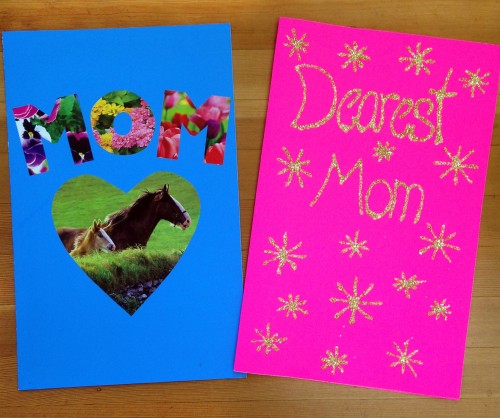 MOM
Dearest
Mom